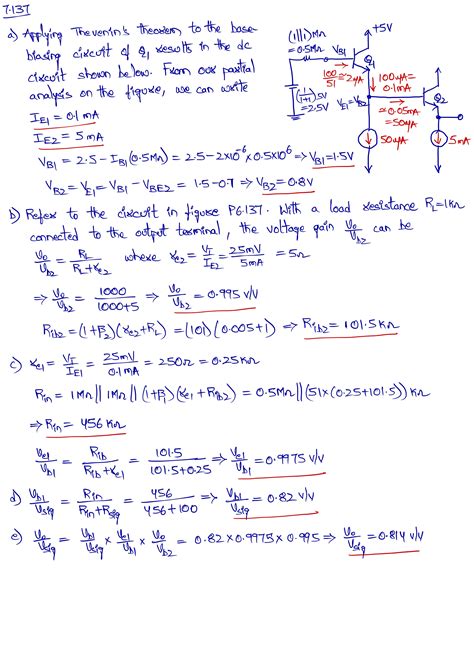 7.137
a) Applying Thevenin's theorem to the base-
biasing circuit of Q1 results in the dc
circuit shown below. From our partial
analysis on the figure, we can write
IE1 = 0.1 mA
IE2 = 5 mA
VB1 = 2.5 - IB1(0.5MΩ) = 2.5 - 2×10^-6 × 0.5×10^6 ⇒ VB1 = 1.5V
VB2 = VE1 = VB1 - VBE2 = 1.5 - 0.7 ⇒ VB2 = 0.8V
(1||1)MΩ
= 0.5MΩ
VB1
+5V
Q1
100/51 ≅ 2μA
100μA =
0.1mA
Q2
(1/(1+1))5V
= 2.5V
VE1 = VB2
≅ 0.05mA
= 50μA
50μA
5mA
b) Refer to the circuit in figure P6.137. With a load resistance RL=1KΩ
connected to the output terminal, the voltage gain Vo/Vb2 can be
Vo/Vb2 = RL/(RL+re2) where re2 = VT/IE2 = 25mV/5mA = 5Ω
⇒ Vo/Vb2 = 1000/(1000+5) ⇒ Vo/Vb2 = 0.995 V/V
Rib2 = (1+β2)(re2+RL) = (101)(0.005+1) ⇒ Rib2 = 101.5KΩ
c) re1 = VT/IE1 = 25mV/0.1mA = 250Ω = 0.25KΩ
Rin = 1MΩ || 1MΩ || (1+β1)(re1+Rib2) = 0.5MΩ || (51×(0.25+101.5)) KΩ
⇒ Rin = 456 KΩ
Ve1/Vb1 = Rib/(Rib+re1) = 101.5/(101.5+0.25) ⇒ Ve1/Vb1 = 0.9975 V/V
d) Vb1/Vsig = Rin/(Rin+Rsig) = 456/(456+100) ⇒ Vb1/Vsig = 0.82 V/V
e) Vo/Vsig = Vb1/Vsig × Ve1/Vb1 × Vo/Vb2 = 0.82 × 0.9975 × 0.995 ⇒ Vo/Vsig = 0.814 V/V